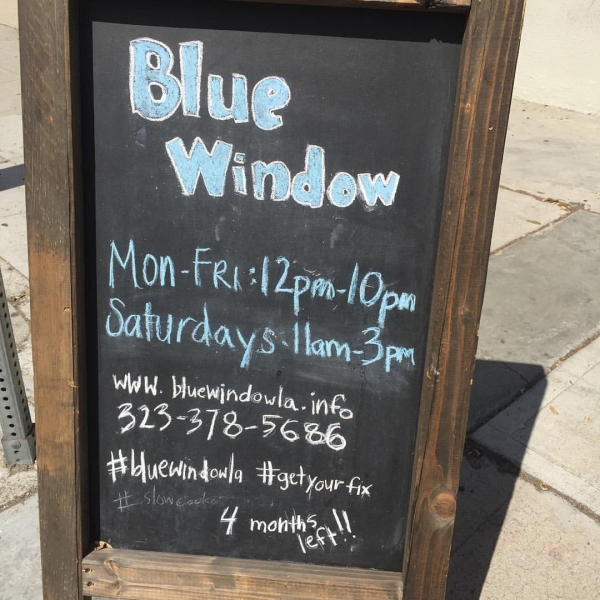 Blue
Window
Mon-Fri:12pm-10pm
Saturdays-11am-3pm
www.bluewindowla.info
323-378-5686
#bluewindowla #getyourfix
#slowcooker
4 months
left!!